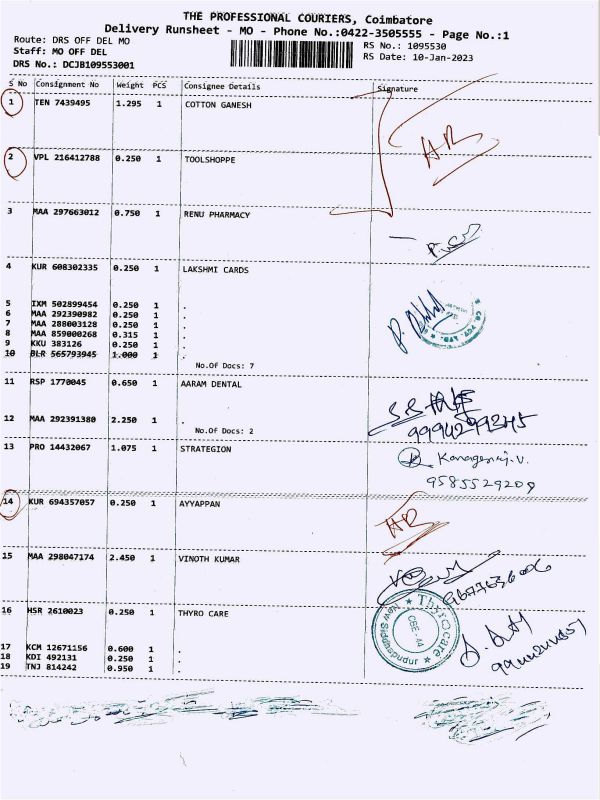 THE PROFESSIONAL COURIERS, Coimbatore
Delivery Runsheet - MO - Phone No.:0422-3505555 - Page No.:1
Route: DRS OFF DEL MO
RS No.: 1095530
Staff: MO OFF DEL
RS Date: 10-Jan-2023
DRS No.: DCJB109553001
S No Consignment No Weight PCS Consignee Details Signature
1 TEN 7439495 1.295 1 COTTON GANESH
HB
2 VPL 216412788 0.250 1 TOOLSHOPPE
3 MAA 297663012 0.750 1 RENU PHARMACY
4 KUR 608302335 0.250 1 LAKSHMI CARDS
5 IXM 502899454 0.250 1 .
6 MAA 292390982 0.250 1 .
7 MAA 288003128 0.250 1 .
8 MAA 859000268 0.315 1 .
9 KKU 383126 0.250 1 .
10 BLR 565793945 1.000 1 .
No.Of Docs: 7
11 RSP 1770045 0.650 1 AARAM DENTAL
12 MAA 292391380 2.250 1 .
No.Of Docs: 2
13 PRO 14432067 1.075 1 STRATEGION
Kanagaraj.V.
9585529209
14 KUR 694357057 0.250 1 AYYAPPAN
HB
15 MAA 298047174 2.450 1 VINOTH KUMAR
16 HSR 2610023 0.250 1 THYRO CARE
Thyrocare
CBE-44
New Siddhapudur
17 KCM 12671156 0.600 1 .
18 KDI 492131 0.250 1 .
19 TNJ 814242 0.950 1 .